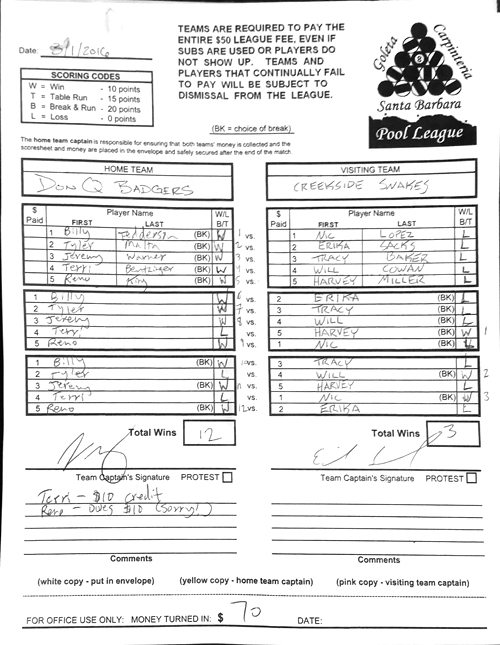 Date: 3/1/2016
TEAMS ARE REQUIRED TO PAY THE
ENTIRE $50 LEAGUE FEE, EVEN IF
SUBS ARE USED OR PLAYERS DO
NOT SHOW UP. TEAMS AND
PLAYERS THAT CONTINUALLY FAIL
TO PAY WILL BE SUBJECT TO
DISMISSAL FROM THE LEAGUE.
(BK = choice of break)
SCORING CODES
W = Win - 10 points
T = Table Run - 15 points
B = Break & Run - 20 points
L = Loss - 0 points
Goleta Carpinteria
Santa Barbara
Pool League
The home team captain is responsible for ensuring that both teams' money is collected and the
scoresheet and money are placed in the envelope and safely secured after the end of the match.
HOME TEAM
DON Q BADGERS
$ Paid Player Name FIRST LAST W/L B/T
1 Billy Fedderson (BK) W 1 vs.
2 Tyler Malta (BK) W 2 vs.
3 Jeremy Warner (BK) W 3 vs.
4 Terri Bentzinger (BK) W 4 vs.
5 Reno King (BK) W 5 vs.
1 Billy W 6 vs.
2 Tyler W 7 vs.
3 Jeremy W 8 vs.
4 Terri L vs.
5 Reno W 9 vs.
1 Billy (BK) W 10 vs.
2 Tyler L vs.
3 Jeremy (BK) W 11 vs.
4 Terri L vs.
5 Reno (BK) W 12 vs.
Total Wins 12
Team Captain's Signature PROTEST
Terri - $10 credit
Reno - Owes $10 (Sorry!)
Comments
VISITING TEAM
CREEKSIDE SNAKES
$ Paid Player Name FIRST LAST W/L B/T
1 NIC LOPEZ L
2 ERIKA SACKS L
3 TRACY BAKER L
4 WILL COWAN L
5 HARVEY MILLER L
2 ERIKA (BK) L
3 TRACY (BK) L
4 WILL (BK) L
5 HARVEY (BK) W 1
1 NIC (BK) L
3 TRACY L
4 WILL (BK) W 2
5 HARVEY L
1 NIC (BK) W 3
2 ERIKA L
Total Wins 3
Team Captain's Signature PROTEST
Comments
(white copy - put in envelope) (yellow copy - home team captain) (pink copy - visiting team captain)
FOR OFFICE USE ONLY: MONEY TURNED IN: $ 70 DATE: